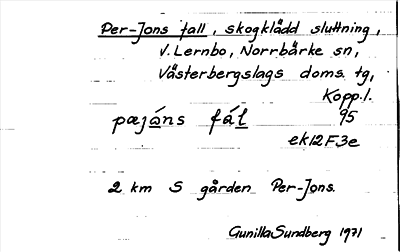 Per-Jons fall, skogklädd sluttning,
V. Lernbo, Norrbärke sn,
Västerbergslags doms. tg,
Kopp. l.
pæjáns fál 95
ek12F3e
2 km S gården Per-Jons.
Gunilla Sundberg 1971